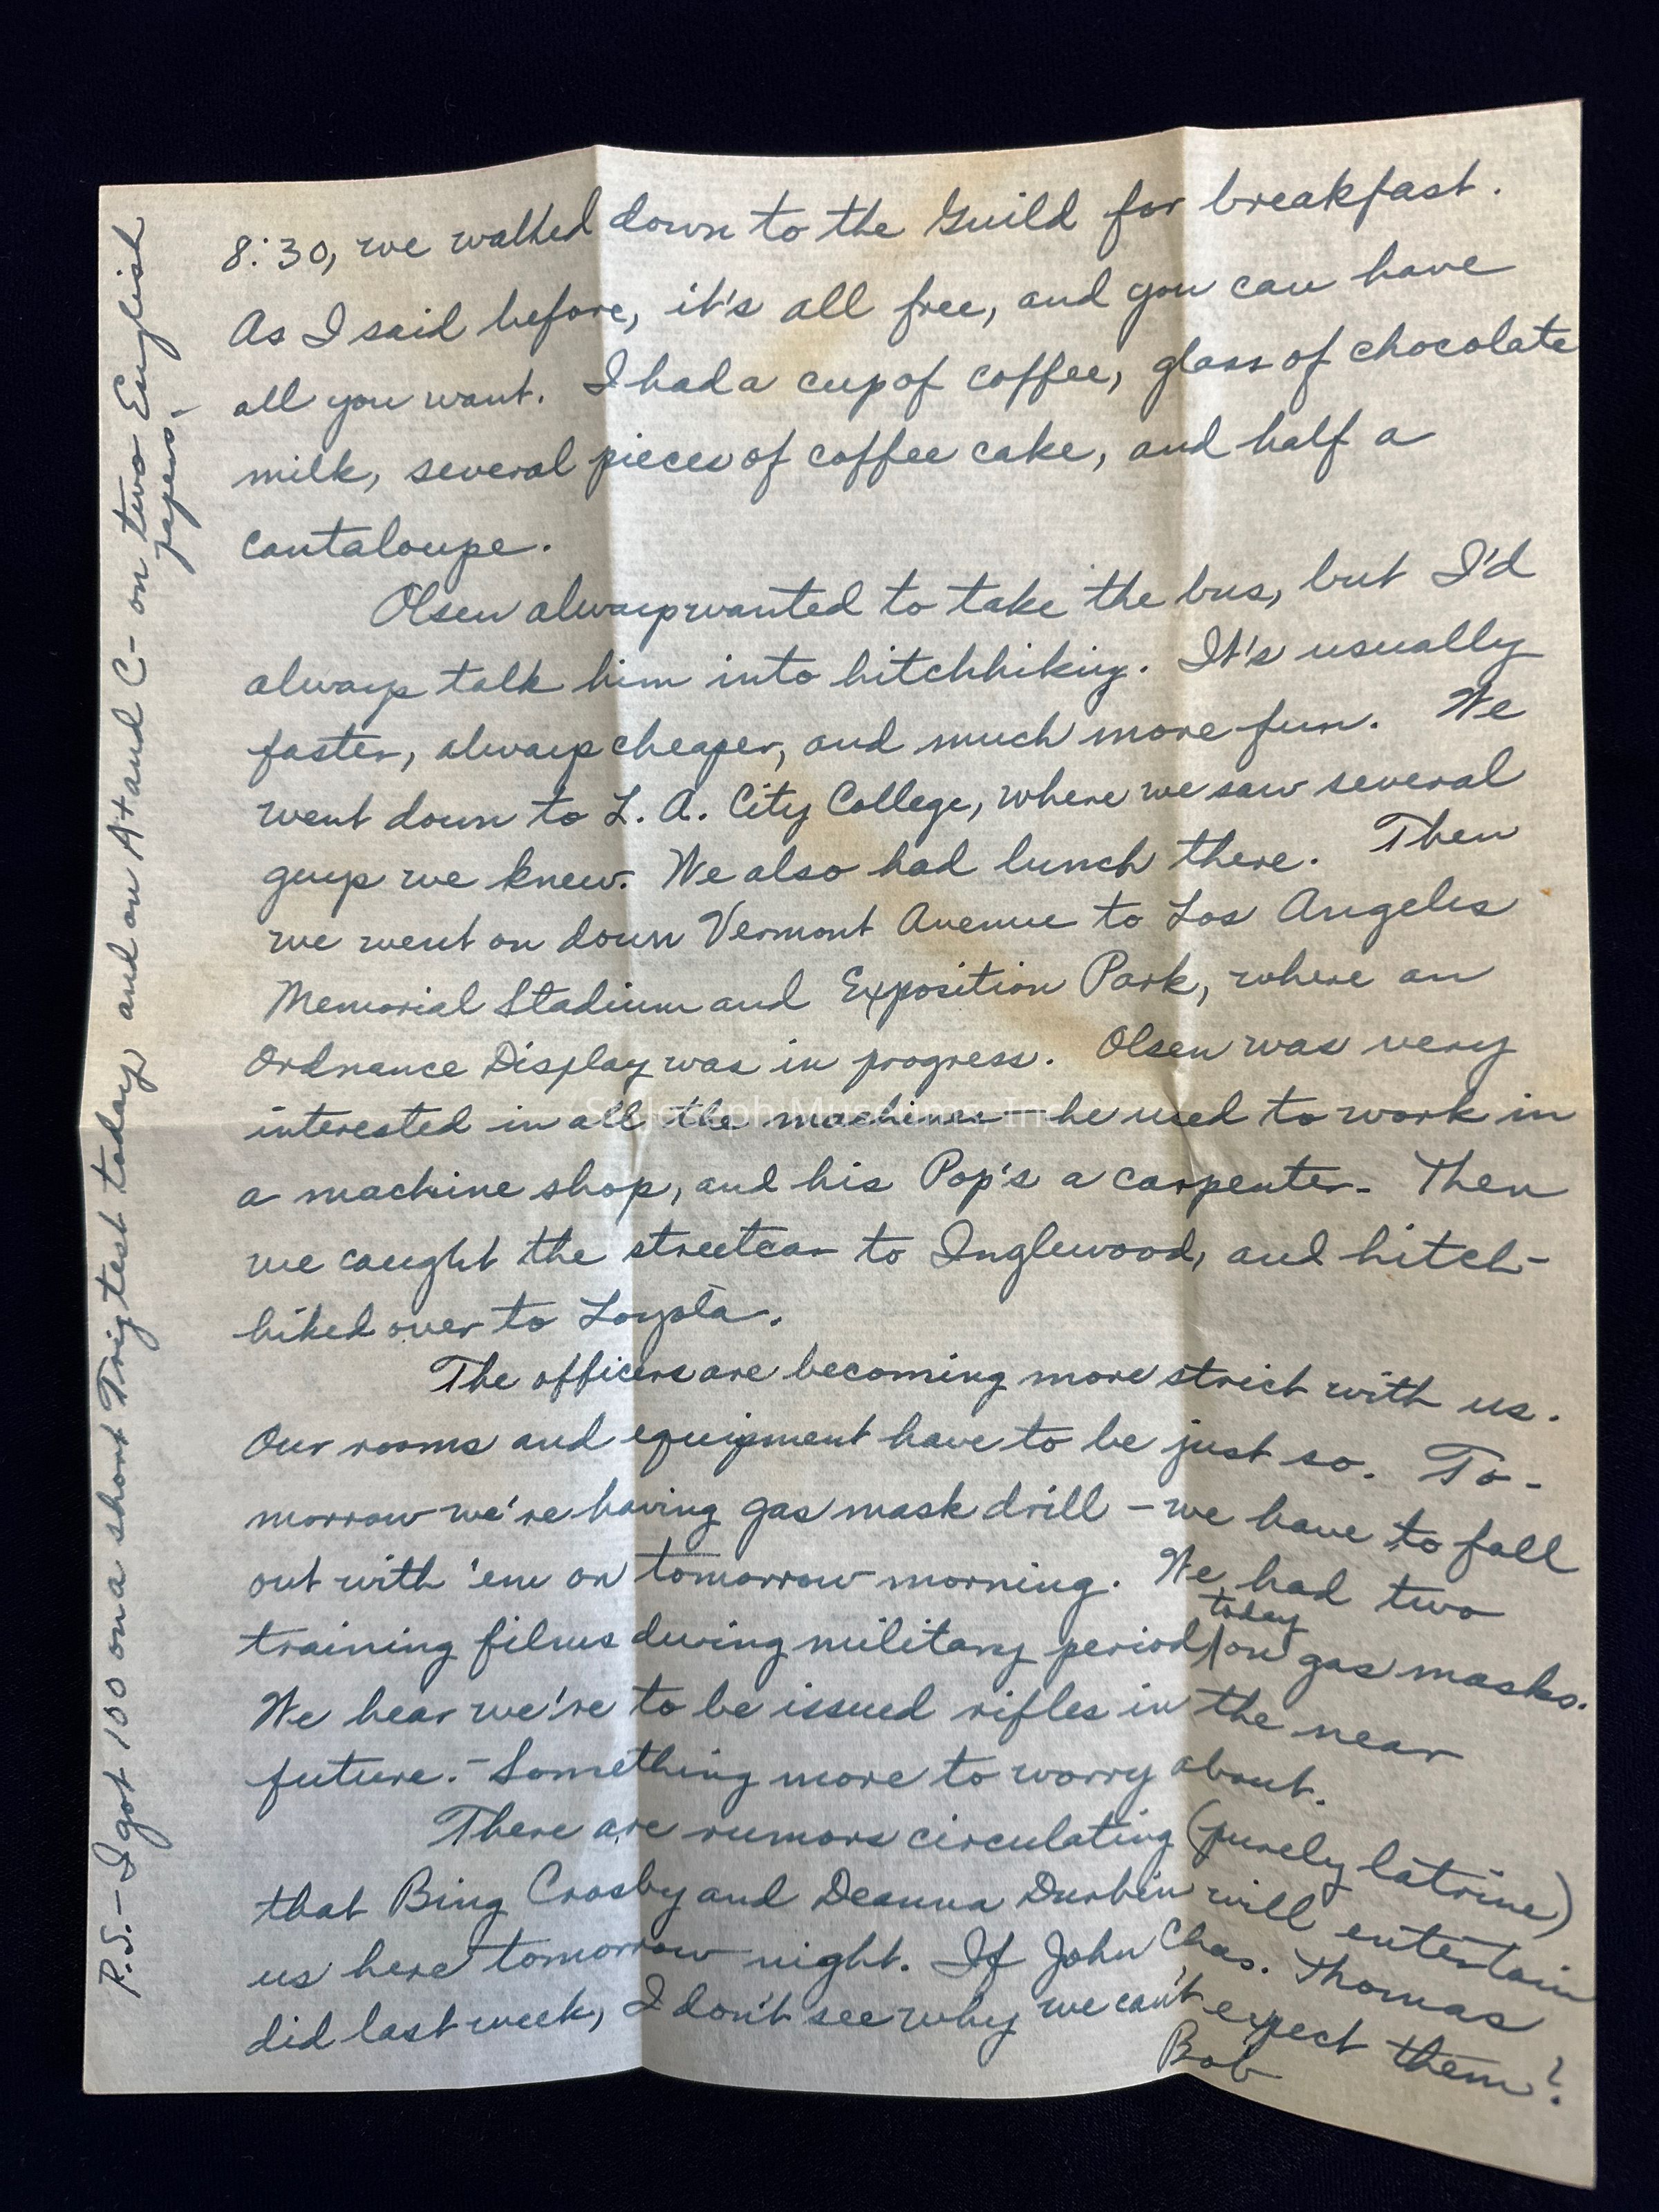 8:30, we walked down to the Guild for breakfast.
As I said before, it's all free, and you can have
all you want. I had a cup of coffee, glass of chocolate
milk, several pieces of coffee cake, and half a
cantaloupe.
Olsen always wanted to take the bus, but I'd
always talk him into hitchhiking. It's usually
faster, always cheaper, and much more fun. We
went down to L. A. City College, where we saw several
guys we knew. We also had lunch there. Then
we went on down Vermont Avenue to Los Angeles
Memorial Stadium and Exposition Park, where an
Ordnance Display was in progress. Olsen was very
interested in all the machines - he used to work in
a machine shop, and his Pop's a carpenter. Then
we caught the streetcar to Inglewood, and hitch-
hiked over to Loyola.
The officers are becoming more strict with us.
Our rooms and equipment have to be just so. To-
morrow we're having gas mask drill - we have to fall
out with 'em on tomorrow morning. We had two
today
training films during military period on gas masks.
We hear we're to be issued rifles in the near
future. - Something more to worry about.
There are rumors circulating (purely latrine)
that Bing Crosby and Deanna Durbin will entertain
us here tomorrow night. If John Chas. Thomas
did last week, I don't see why we can't expect them?
Bob
P.S. - I got 100 on a short Trig test today and an A+ and C- on two English
papers.
St Joseph Museums, Inc